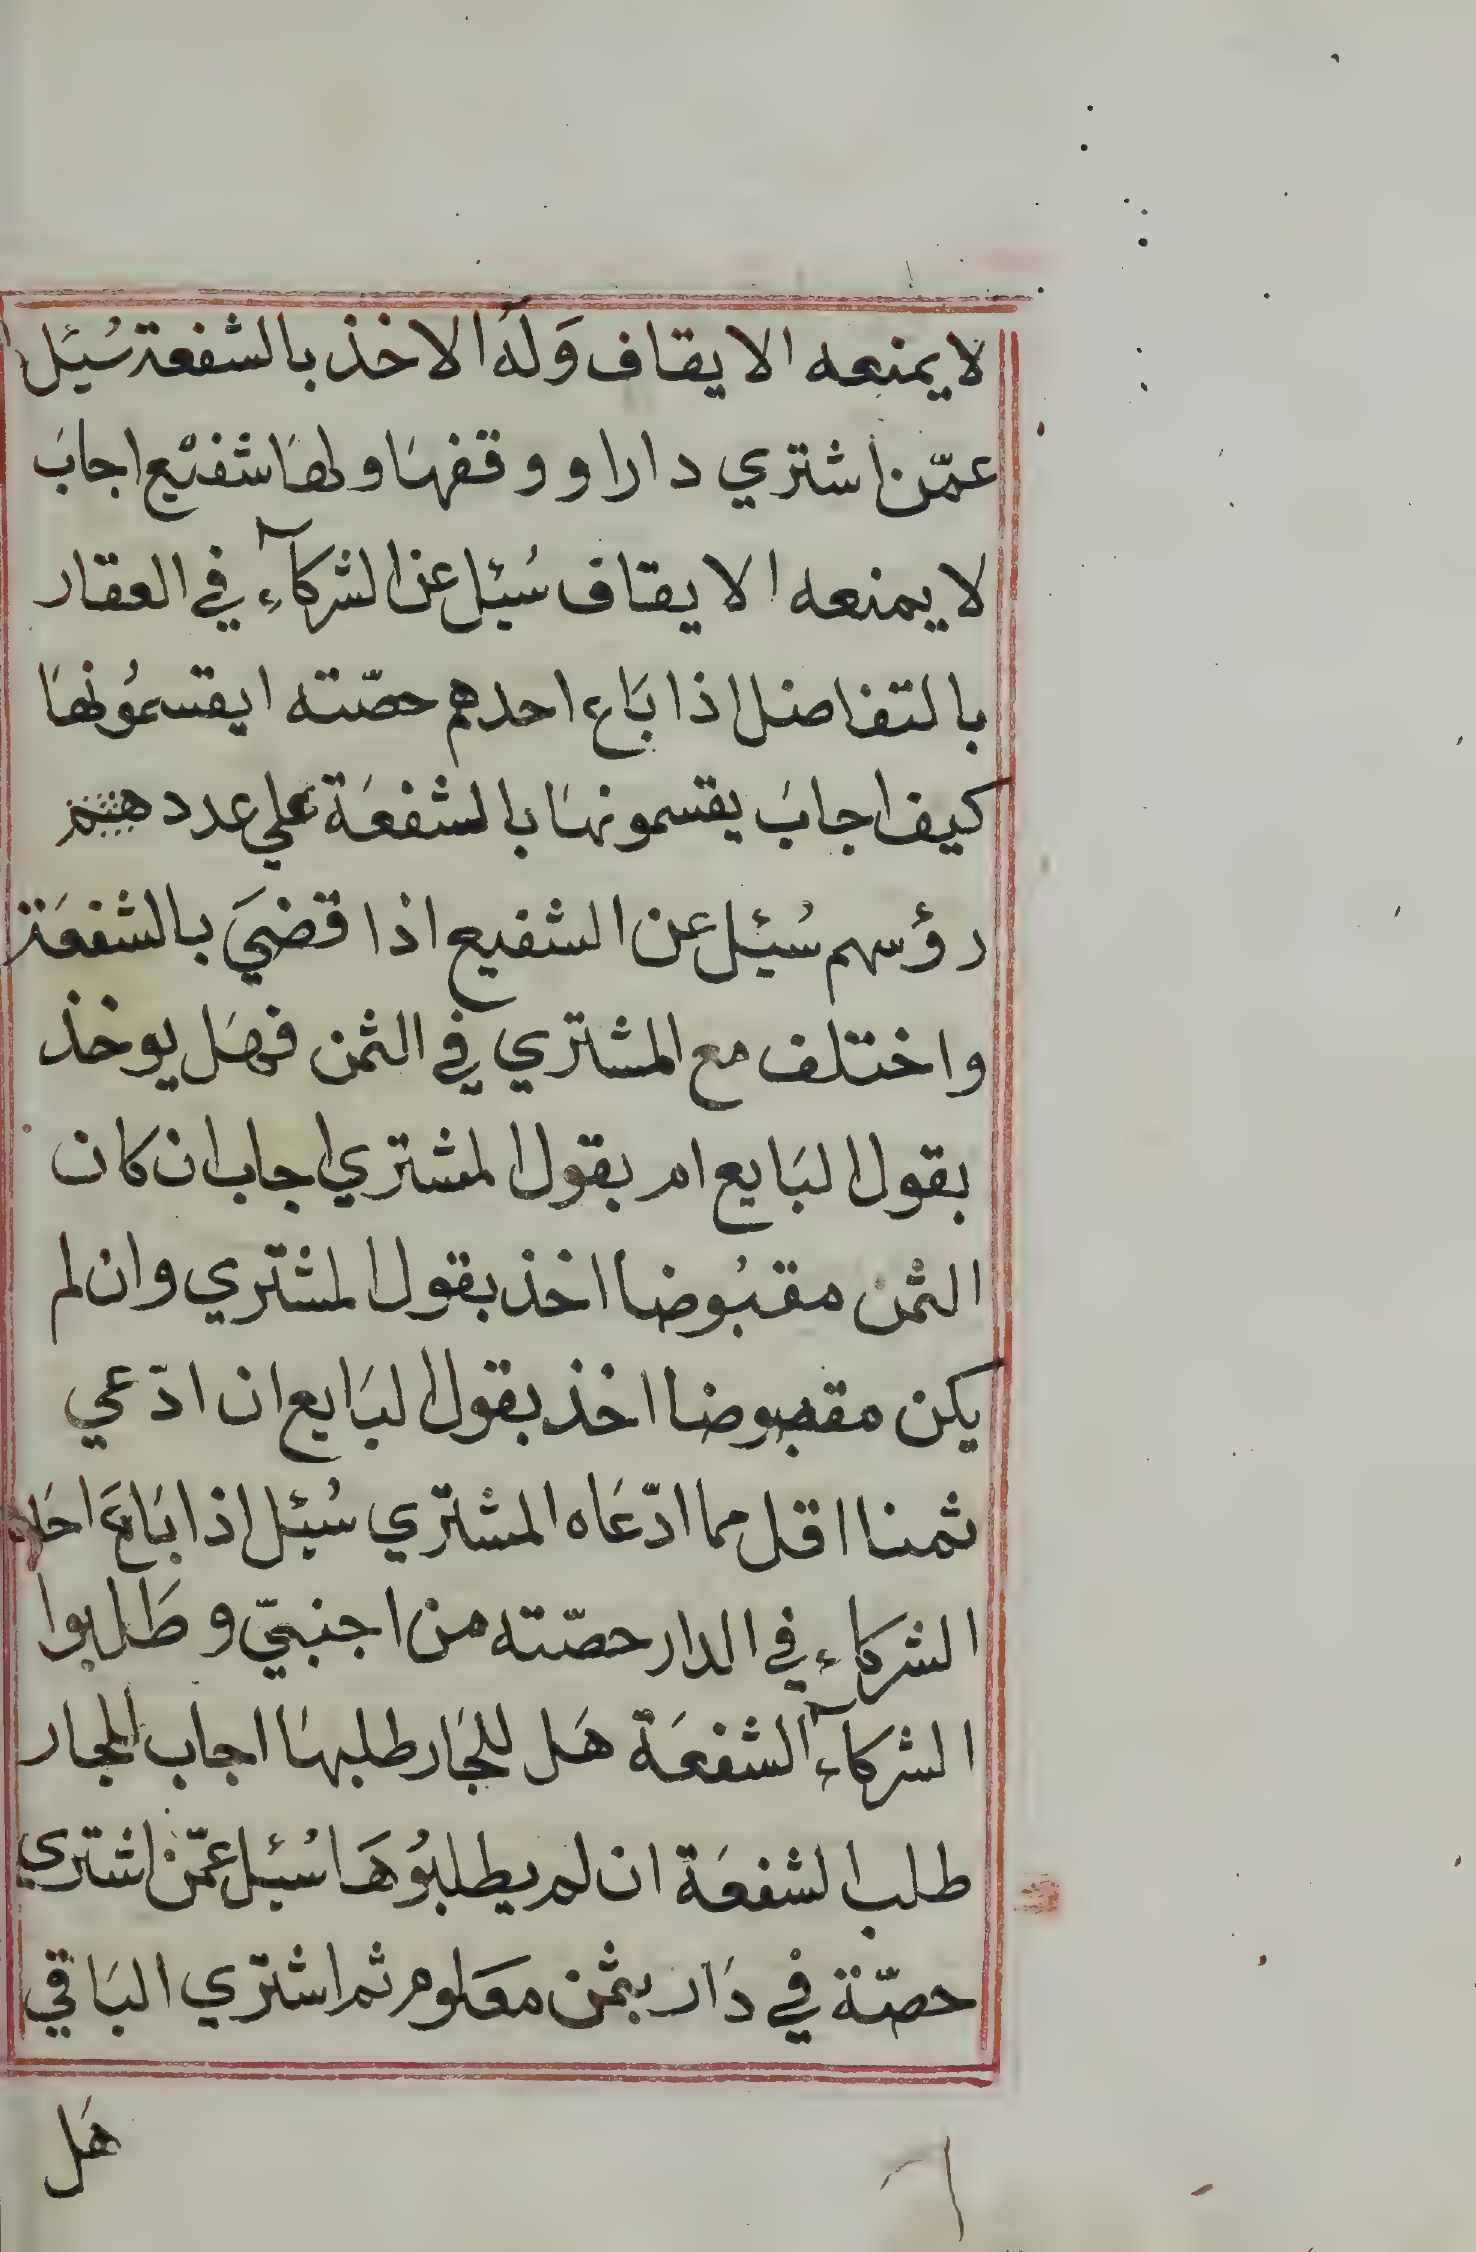 لا يمنعه الايقاف وَلهُ الاخذ بالشفعة سُئل
عمّن اشتري دارا ووقفهَا ولهَا شفيْع اجابَ
لا يمنعه الايقاف سُئل عن الشركآء في العقار
بالتفاضل اذا بَاع احدهم حصّته ايقسمُونهَا
كيف اجابَ يقسمونهَا بالشفعَة علي عدد
رؤسهم سُئل عن الشفيع اذا قضيَ بالشفعَة
واختلف مع المشتري في الثمن فهَل يوخذ
بقول البَايع ام بقول المشتري اجاب ان كان
الثمن مقبُوضا اخذ بقول المشتري وان لم
يكن مقبوضا اخذ بقول البَايع ان ادّعي
ثمنا اقل مما ادّعَاه المشتري سُئل اذا بَاعَ احَد
الشركاء في الدار حصّته من اجنبيّ وطلبوا
الشركآء الشفعَة هَل للجَار طلبهَا اجاب للجار
طلب الشفعَة ان لم يطلبُوهَا سُئل عمّن اشتري
حصّة في دَار بثمن معَلوم ثم اشتري البَاقي
هَل